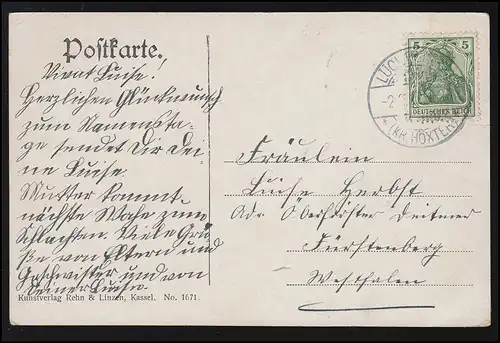 Postkarte.
Vivat Luise!
Herzlichen Glückwunsch
zum Namensta-
ge sendet Dir Dei-
ne Luise.
Mutter kommt
nächste Woche zum
Schlachten. Viele Grü-
ße von Eltern und
Geschwister und von
Deiner Luise.
Kunstverlag Rehn & Linzen, Kassel. No. 1671.
5 5
DEUTSCHES REICH
(KR. HÖXTER)
Fräulein
Luise Herbst
Adr. Oberförster Deitmer
Fürstenberg
Westfalen